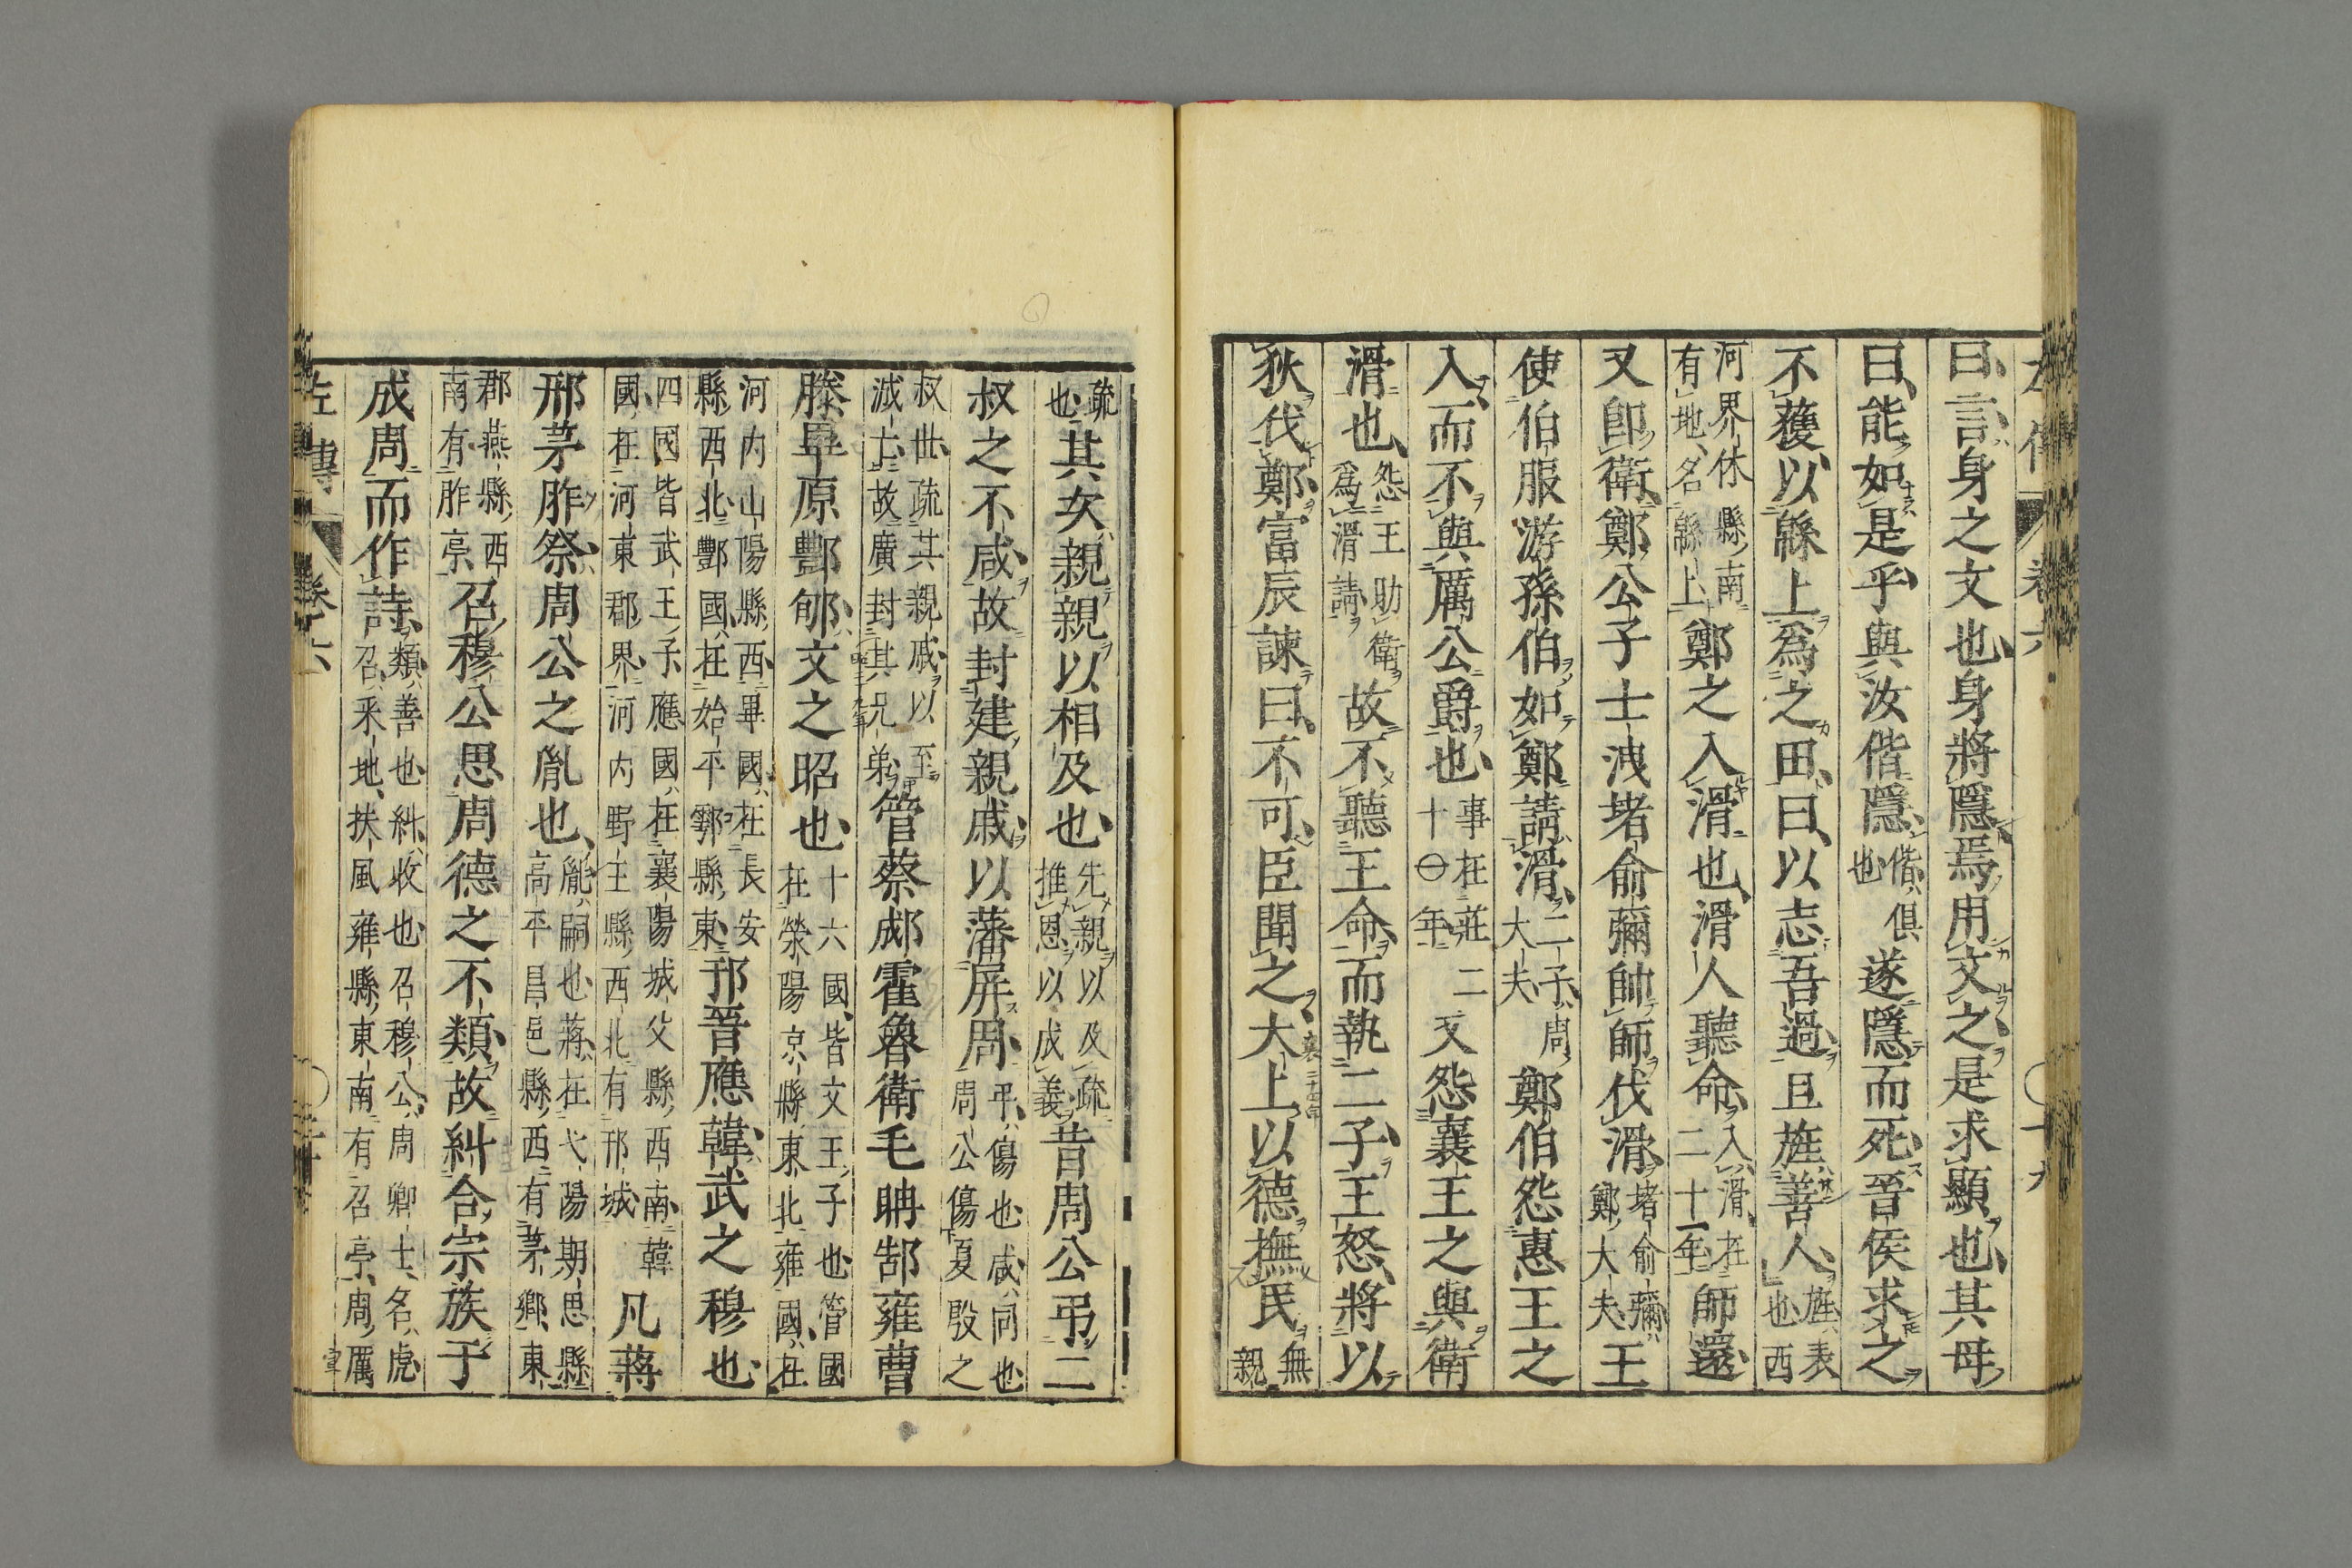 曰言身之文也身將隱焉用文之是求顯也其母
曰能如是乎與汝偕隱偕俱也遂隱而死晉侯求之
不獲以緜上爲之田曰以志吾過且旌善人旌表也西
河界休縣南有地名緜上鄭之入滑也滑人聽命入滑在二十年師還
又卽衛鄭公子士洩堵俞彌帥師伐滑堵俞彌鄭大夫王
使伯服游孫伯如鄭請滑二子周大夫鄭伯怨惠王之
入而不與厲公爵也事在莊二十一年又怨襄王之與衛
滑也怨王助衛爲滑請故不聽王命而執二子王怒將以
狄伐鄭富辰諫曰不可臣聞之大上以德撫民無親
疏也其次親親以相及也先親以及疏推恩以成義昔周公弔二
叔之不咸故封建親戚以藩屏周弔傷也咸同也周公傷夏殷之
叔世疏其親戚以至滅亡故廣封其兄弟管蔡郕霍魯衛毛聃郜雍曹
滕畢原酆郇文之昭也十六國皆文王子也管國在滎陽京縣東北雍國在
河内山陽縣西畢國在長安縣西北酆國在始平鄠縣東邘晉應韓武之穆也
四國皆武王子應國在襄陽城父縣西南韓國在河東郡界河内野王縣西北有邘城凡蔣
邢茅胙祭周公之胤也胤嗣也蔣在弋陽期思縣高平昌邑縣西有茅鄉東
郡燕縣西南有胙亭召穆公思周德之不類故糾合宗族于
成周而作詩類善也糾收也召穆公周卿士名虎召采地扶風雍縣東南有召亭周厲
左傳 卷六